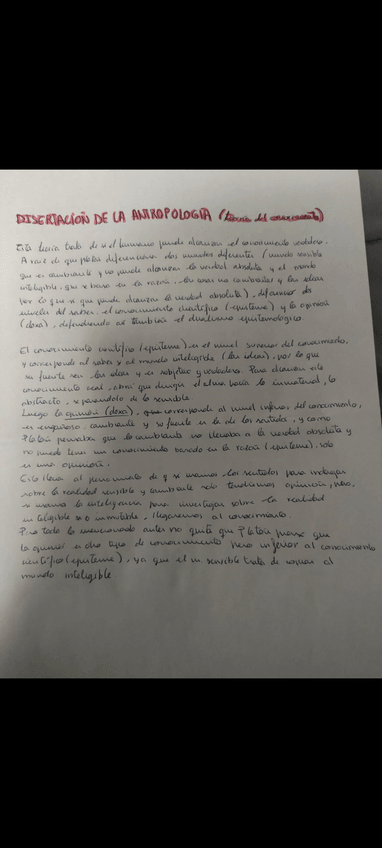 DISERTACIÓN DE LA ANTROPOLOGÍA (teoría del conocimiento)
Esta teoría trata de si el humano puede alcanzar el conocimiento verdadero.
A raíz de que platón diferenciara dos mundos diferentes (mundo sensible
que es cambiante y no puede alcanzar la verdad absoluta y el mundo
inteligible, que se basa en la razón, no cambiantes y las ideas
por lo que si que puede alcanzar la verdad absoluta), diferencia dos
niveles del saber: el conocimiento científico (episteme) y la opinión
(doxa), defendiendo así también el dualismo epistemológico.
El conocimiento científico (episteme) es el nivel superior del conocimiento,
y corresponde al saber y al mundo inteligible (las ideas), por lo que
su fuente son las ideas y es objetivo y verdadero. Para alcanzar este
conocimiento real, había que dirigir el alma hacia lo inmaterial, lo
abstracto, separándolo de lo sensible.
Luego la opinión (doxa), que corresponde al nivel inferior del conocimiento,
es engañoso, cambiante y su fuente es la de los sentidos, y como
Platón pensaba que lo cambiante no llevaba a la verdad absoluta y
no puede llevar un conocimiento basado en la razón (episteme), solo
es una opinión.
Esto lleva al pensamiento de q si usamos los sentidos para indagar
sobre la realidad sensible y cambiante solo tendremos opinión, pero,
si usamos la inteligencia para investigar sobre la realidad
inteligible e inmutable, llegaremos al conocimiento.
Pero todo lo mencionado antes no quita que Platón piense que
la opinión es otro tipo de conocimiento pero inferior al conocimiento
científico (episteme), ya que el m sensible trata de copiar al
mundo inteligible